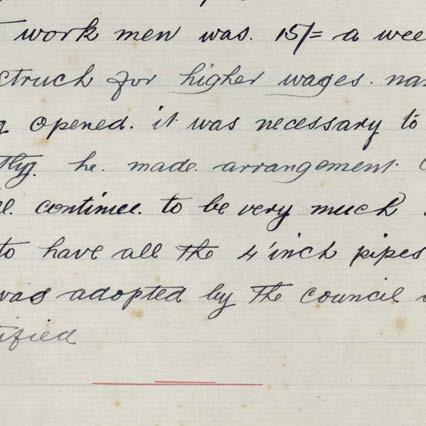 work men was. 15/= a wee
struck for higher wages. na
opened. it was necessary to
tly. he. made. arrangement.
continue. to be very much
to have all the 4 inch pipes
was adopted by the council
ified